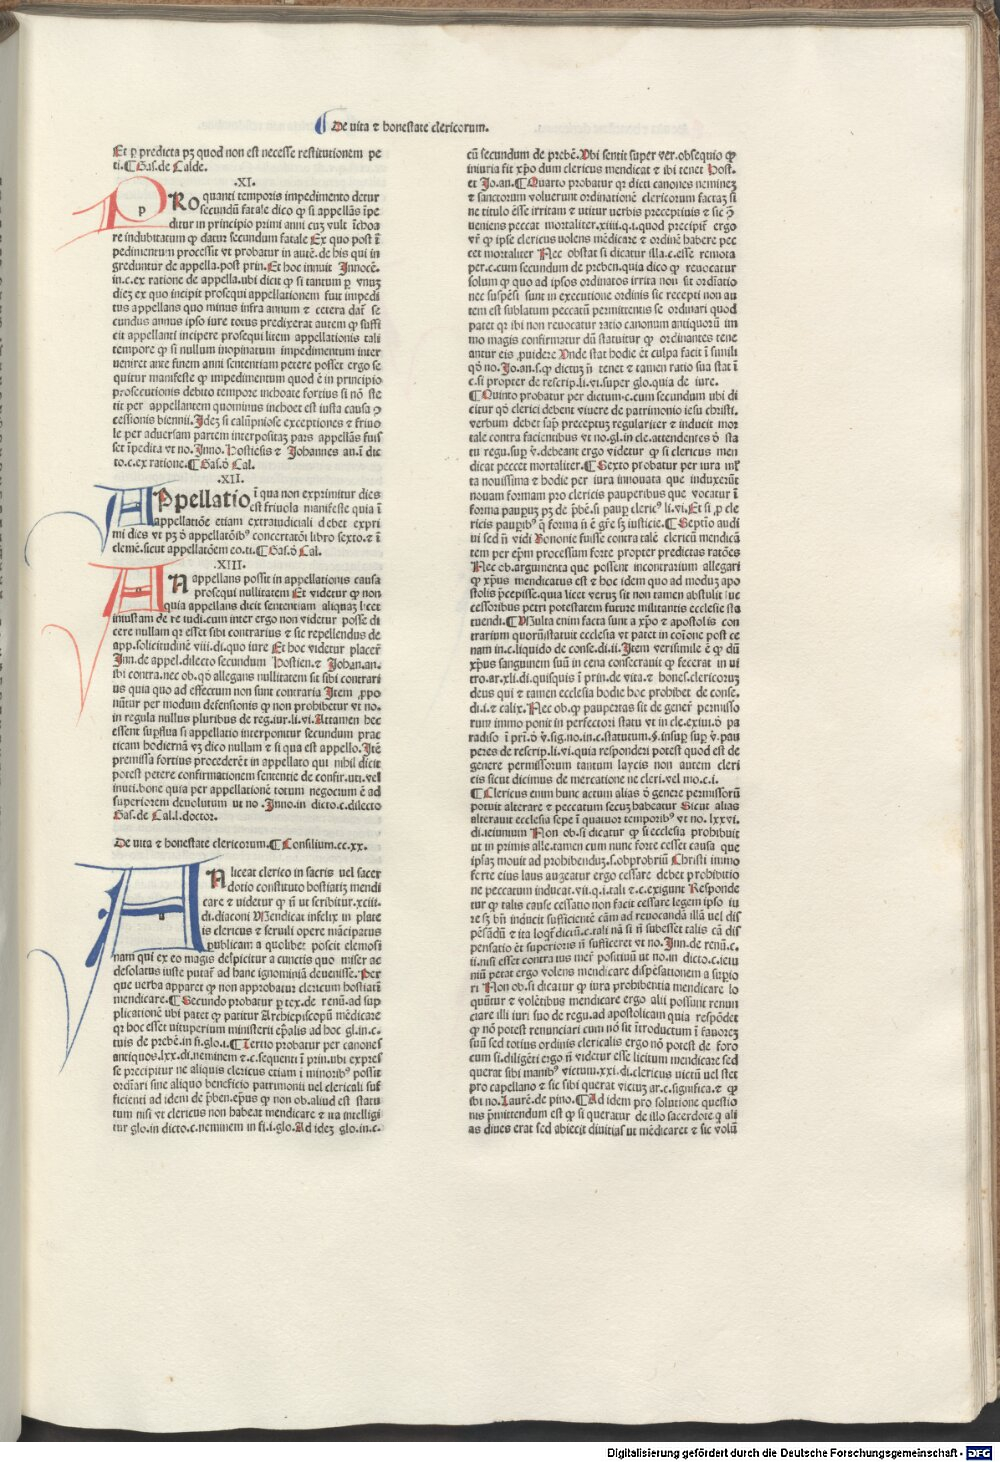 De uita ⁊ honestate clericorum.
Et ꝑ predicta pꝫ quod non est necesse restitutionem pe
ti.¶Gas.de Calde.
.XI.
PRo quanti temporis impedimento detur
secundū fatale dico ꝙ si appellās īpe
ditur in principio primi anni cuꝫ vult īcboa
re indubitatum ꝙ datur secundum fatale Ex quo post ī
pedimentum processit vt probatur in autē.de his qui in
grediuntur de appella.post prin.Et hoc innuit Innocē.
in.c.ex ratione de appella.ubi dicit ꝙ si tantum ꝑ vnuꝫ
dieꝫ ex quo incipit prosequi appellationem fuit impedi
tus appellans quo minus infra annum ⁊ cetera daf se
cundus annus ipso iure totus predixerat autem ꝙ suffi
cit appellanti incipere prosequi litem appellationis tali
tempore ꝙ si nullum inopinatum impedimentum inter
veniret ante finem anni sententiam petere posset ergo se
quitur manifeste ꝙ impedimentum quod ē in principio
prosecutionis debito tempore inchoate fortius si nō ste
tit per appellantem quominus inchoet est iusta causa ꝯ
cessionis biennii.Ideꝫ si calūpniose exceptiones ⁊ friuo
le per aduersam partem interpositaꝫ pars appellās fuis
set īpedita vt no.Inno.Hostiesis ⁊ Johannes an.ī dic
to.c.ex ratione.¶Gas.ō Cal.
.XII.
APpellatio ī qua non exprimitur dies
est friuola manifeste quia ī
appellatiōe etiam extraiudiciali debet expri
mi dies vt pꝫ ō appellatōibꝰ concertatōi libro sexto.⁊ ī
clemē.sicut appellatōem eo.ti.¶Gas.ō Cal.
.XIII.
AN appellans possit in appellationis causa
prosequi nullitatem Et videtur ꝙ non
quia appellans dicit sententiam aliquaꝫ licet
iniustam de re iudi.cum inter ergo non videtur posse di
cere nullam qꝛ esset sibi contrarius ⁊ sic repellendus de
app.solicitudinē viii.di.quo iure Et hoc videtur placer̄
Inn.de appel.dilecto secundum Hostien.⁊ Johan.an.
ibi contra.nec ob.qō allegans nullitatem sit sibi contrari
us quia quo ad effectum non sunt contraria Item ꝓpo
nūtur per modum defensionis ꝙ non prohibetur vt no.
in regula nullus pluribus de reg.iur.li.vi.Attamen hec
essent suꝑflua si appellatio interponitur secundum prac
ticam hodiernā vꝫ dico nullam ⁊ si qua est appello.Itē
premissa fortius procederēt in appellato qui nihil dicit
potest petere confirmationem sententie de confir.uti.vel
inuti.bone quia per appellationē totum negocium ē ad
superiorem deuolutum ut no .Inno.in dicto.c.dilecto
Gas.de Cal.l.doctor.
De uita ⁊ honestate clericorum.¶Consilium.cc.xx.
AN liceat clerico in sacris uel sacer
dotio constituto hostiatiꝫ mendi
care ⁊ uidetur ꝙ n̄ ut scribitur.xciii.
di.diaconi Mendicat infelix in plate
is clericus ⁊ seruili opere mācipatus
publicam a quolibet poscit elemosi
nam qui ex eo magis despicitur a cunctis quo miser ac
desolatus iuste putaf ad hanc ignominiā deuenisse.Per
que uerba apparet ꝙ non approbatur clericum hostiatī
mendicare.¶Secundo probatur ꝑ tex.de renū.ad sup
plicationē ubi patet ꝙ patitur Archiepiscopū mēdicare
qꝛ hoc esset vituperium ministerii eꝑalis ad hoc gl.in.c.
tuis de prebē.in fi.glo.i.¶Tertio probatur per canones
antiquos.lxx.di.neminem ⁊.c.sequenti ī prin.ubi expres
se precipitur ne aliquis clericus etiam ī minoribꝰ possit
ordīari sine aliquo beneficio patrimonii uel clericali suf
ficienti ad idem de p̄ben.eꝑus ꝙ non ob.aliud est statu
tum nisi vt clericus non habeat mendicare ⁊ ita intelligi
tur glo.in dicto.c.neminem in fi.i.glo.Ad ideꝫ glo.in.c.
cū secundum de prebē.Vbi sentit super ver.obsequio ꝙ
iniuria fit xp̄o dum clericus mendicat ⁊ ibi tenet Host.
et Jo.an.¶Quarto probatur qꝛ dicti canones nemineꝫ
⁊ sanctorum voluerunt ordinationē clericorum factaꝫ si
ne titulo esse irritam ⁊ utitur verbis preceptiuis ⁊ sic ꝯ̄
ueniens peccat mortaliter.xiiii.q.i.quod precipiī ergo
vr̄ ꝙ ipse clericus uolens mēdicare ⁊ ordinē habere pec
cet mortaliter Nec obstat si dicatur illa.c.esse remota
per.c.cum secundum de preben.quia dico ꝙ reuocatur
solum ꝙ quo ad ipsos ordinatos irrita non sit ordīatio
nec suspēsi sunt in executione ordinis sic recepti non au
tem est sublatum peccatū permittentis se ordinari quod
patet qꝛ ibi non reuocatur ratio canonum antiquorū im
mo magis confirmatur dū statuitur ꝙ ordinantes tene
antur eis ꝓuidere Vnde stat hodie et culpa facit ī simili
qō no.Jo.an.s.ꝙ dictuꝫ n̄ tenet ⁊ tamen ratio sua stat ī
c.si propter de rescrip.li.vi.super glo.quia de iure.
¶Quinto probatur per dictum.c.cum secundum ubi di
citur qō clerici debent viuere de patrimonio iesu christi.
verbum debet sap̄ preceptuꝫ regulariter ⁊ inducit mor
tale contra facientibus vt no.gl.in cle.attendentes ō sta
tu regu.suꝑ v̄.debeant ergo videtur ꝙ si clericus men
dicat peccet mortaliter.¶Sexto probatur per iura ml̄
ta nouissima ⁊ hodie per iura innouata que induxerūt
nouam formam pro clericis pauperibus que vocatur ī
forma pauꝑuꝫ pꝫ de p̄bē.si pauꝑ clericꝰ li.vi.Et si ꝓ cle
ricis pauꝑibꝰ q̄ forma n̄ ē gr̄e sꝫ iusticie.¶Septīo audi
ui sed n̄ vidi Bononie fuisse contra talē clericū mendicā
tem per eꝑm processum forte propter predictas ratōes
Nec ob.argumenta que possent incontrarium allegari
ꝙ xꝑus mendicatus est ⁊ hoc idem quo ad moduꝫ apo
stolis p̄cepisse.quia licet veruꝫ sit non tamen abstulit suc
cessoribus petri potestatem future militantis ecclesie sta
tuendi.¶Multa enim facta sunt a xp̄o ⁊ apostolis con
trarium quorū statuit ecclesia vt patet in coīone post ce
nam in.c.liquido de conse.di.ii.Item verisimile ē ꝙ dū
xꝑus sanguinem suū in cena consecrauit ꝙ fecerat in ui
tro.ar.xli.di.quisquis ī prin.de vita.⁊ hones.clericoruꝫ
deus qui ⁊ tamen ecclesia hodie hoc prohibet de conse.
di.i.⁊ calix.Nec ob.ꝙ paupertas sit de gener̄ permisso
rum immo ponit in perfectiori statu vt in cle.exiui.ō pa
radiso ī prī.ō v̄.sig.no.in.c.statutum.§.insuꝑ suꝑ v̄.pau
peres de rescrip.li.vi.quia responderi potest quod est de
genere permissorum tantum laycis non autem cleri
cis sicut dicimus de mercatione ne cleri.vel mo.c.i.
¶Clericus enim hunc actum alias ō genere permissorū
potuit alterare ⁊ peccatum secuꝫ habeatur Sicut alias
alterauit ecclesia sepe ī quatuor temporibꝰ vt no. lxxvi.
di.ieiunium Non ob.si dicatur ꝙ si ecclesia prohibuit
ut in primis alle.tamen cum nunc forte cesset causa que
ipsaꝫ mouit ad prohibenduꝫ.s.obprobriū Christi immo
forte eius laus augeatur ergo cessare debet prohibitio
ne peccatum inducat.vii.q.i.tali ⁊.c.exigunt Responde
tur ꝙ talis cause cessatio non facit cessare legem ipso iu
re sꝫ bn̄ inducit sufficientē cām ad reuocandā illā uel dis
pēsādū ⁊ ita loqr̄ dictū.c.tali nā si n̄ subesset talis cā dis
pensatio ēt superioris n̄ sufficeret vt no.Inn.de renū.c.
ii.nisi esset contra ius mer̄ positiuū ut no.in dicto.c.ieiu
niū petat ergo volens mendicare dispēsationem a suꝑio
ri Non ob.si dicatur ꝙ iura prohibentia mendicare lo
quūtur ⁊ volētibus mendicare ergo alii possunt renun
ciare illi iuri suo de regu.ad apostolicam quia respōdet
ꝙ nō potest renunciari cum nō sit ītroductum ī fauoreꝫ
suū sed totius ordinis clericalis ergo nō potest de foro
cum si.diligēti ergo n̄ videtur esse licitum mendicare sed
querat sibi manibꝰ victum.xxi.di.clericus victū uel stet
pro capellano ⁊ sic sibi querat victuꝫ ar.c.significa.⁊ ꝙ
ibi no.Laurē.de pino.¶Ad idem pro solutione questio
nis p̄mittendum est ꝙ si queratur de illo sacerdote q ali
as diues erat sed abiecit diuitias ut mēdicaret ⁊ sic volū
Digitalisierung gefördert durch die Deutsche Forschungsgemeinschaft - DFG